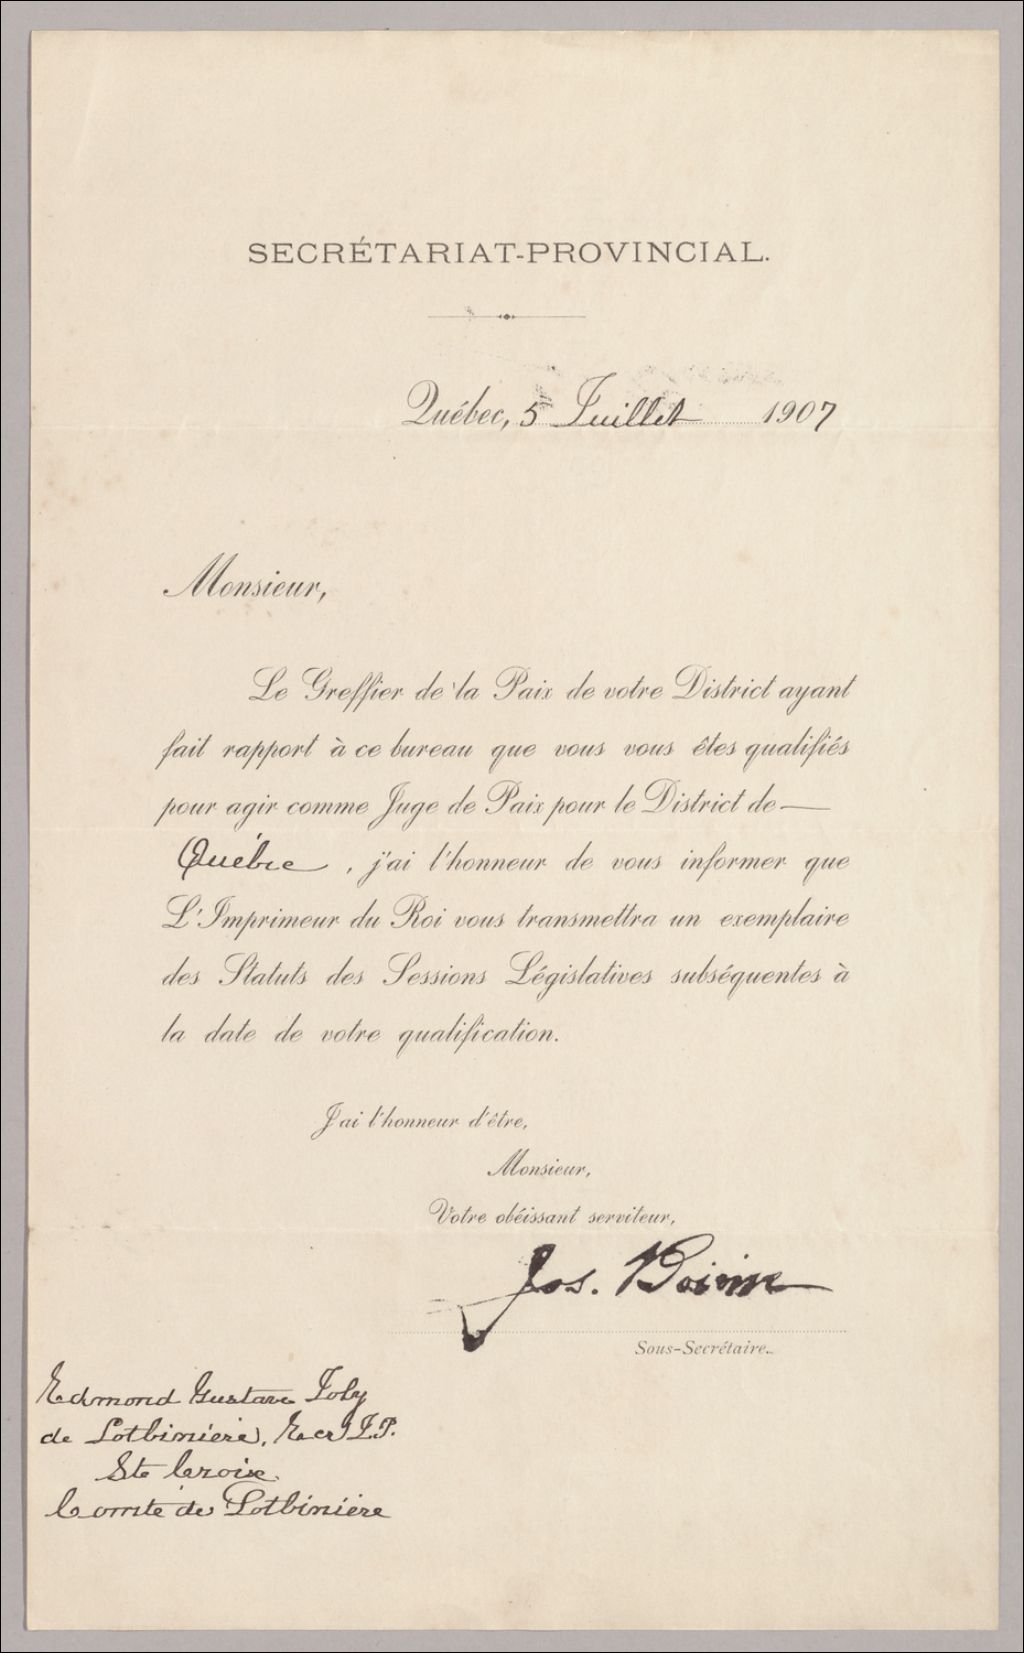 SECRÉTARIAT-PROVINCIAL.
Québec, 5 Juillet 1907
Monsieur,
Le Greffier de la Paix de votre District ayant
fait rapport à ce bureau que vous vous êtes qualifiés
pour agir comme Juge de Paix pour le District de—
Québec, j'ai l'honneur de vous informer que
L'Imprimeur du Roi vous transmettra un exemplaire
des Statuts des Sessions Législatives subséquentes à
la date de votre qualification.
J'ai l'honneur d'être,
Monsieur,
Votre obéissant serviteur,
Jos. Boivin
Sous-Secrétaire.
Edmond Gustave Joly
de Lotbinière, Ecr J.P.
Ste Croix
Comté de Lotbinière